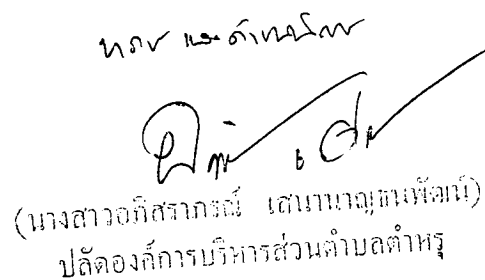 ทราบ และดำเนินการ
(นางสาวอทิสราภรณ์ เสนานาญธนพัฒน์)
ปลัดองค์การบริหารส่วนตำบลตำหรุ